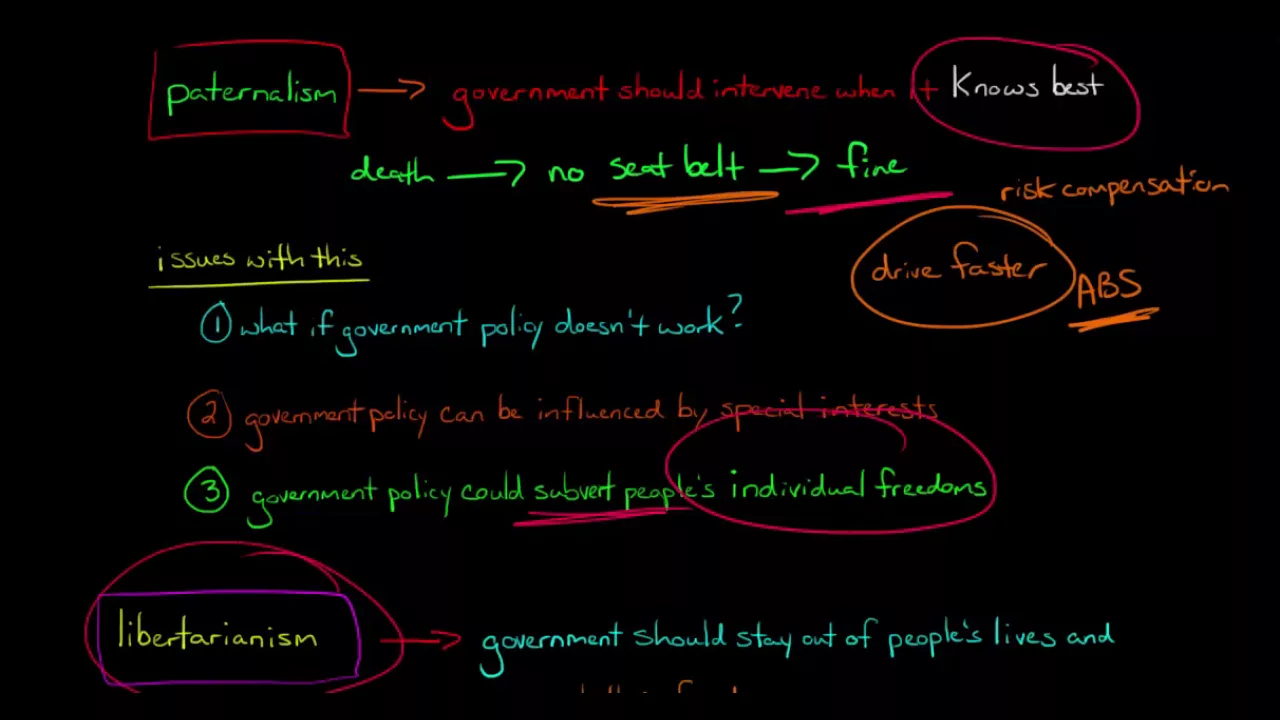 paternalism → government should intervene when it knows best
death → no seat belt → fine
risk compensation
issues with this
drive faster
ABS
① what if government policy doesn't work?
② government policy can be influenced by special interests
③ government policy could subvert people's individual freedoms
libertarianism → government should stay out of people's lives and